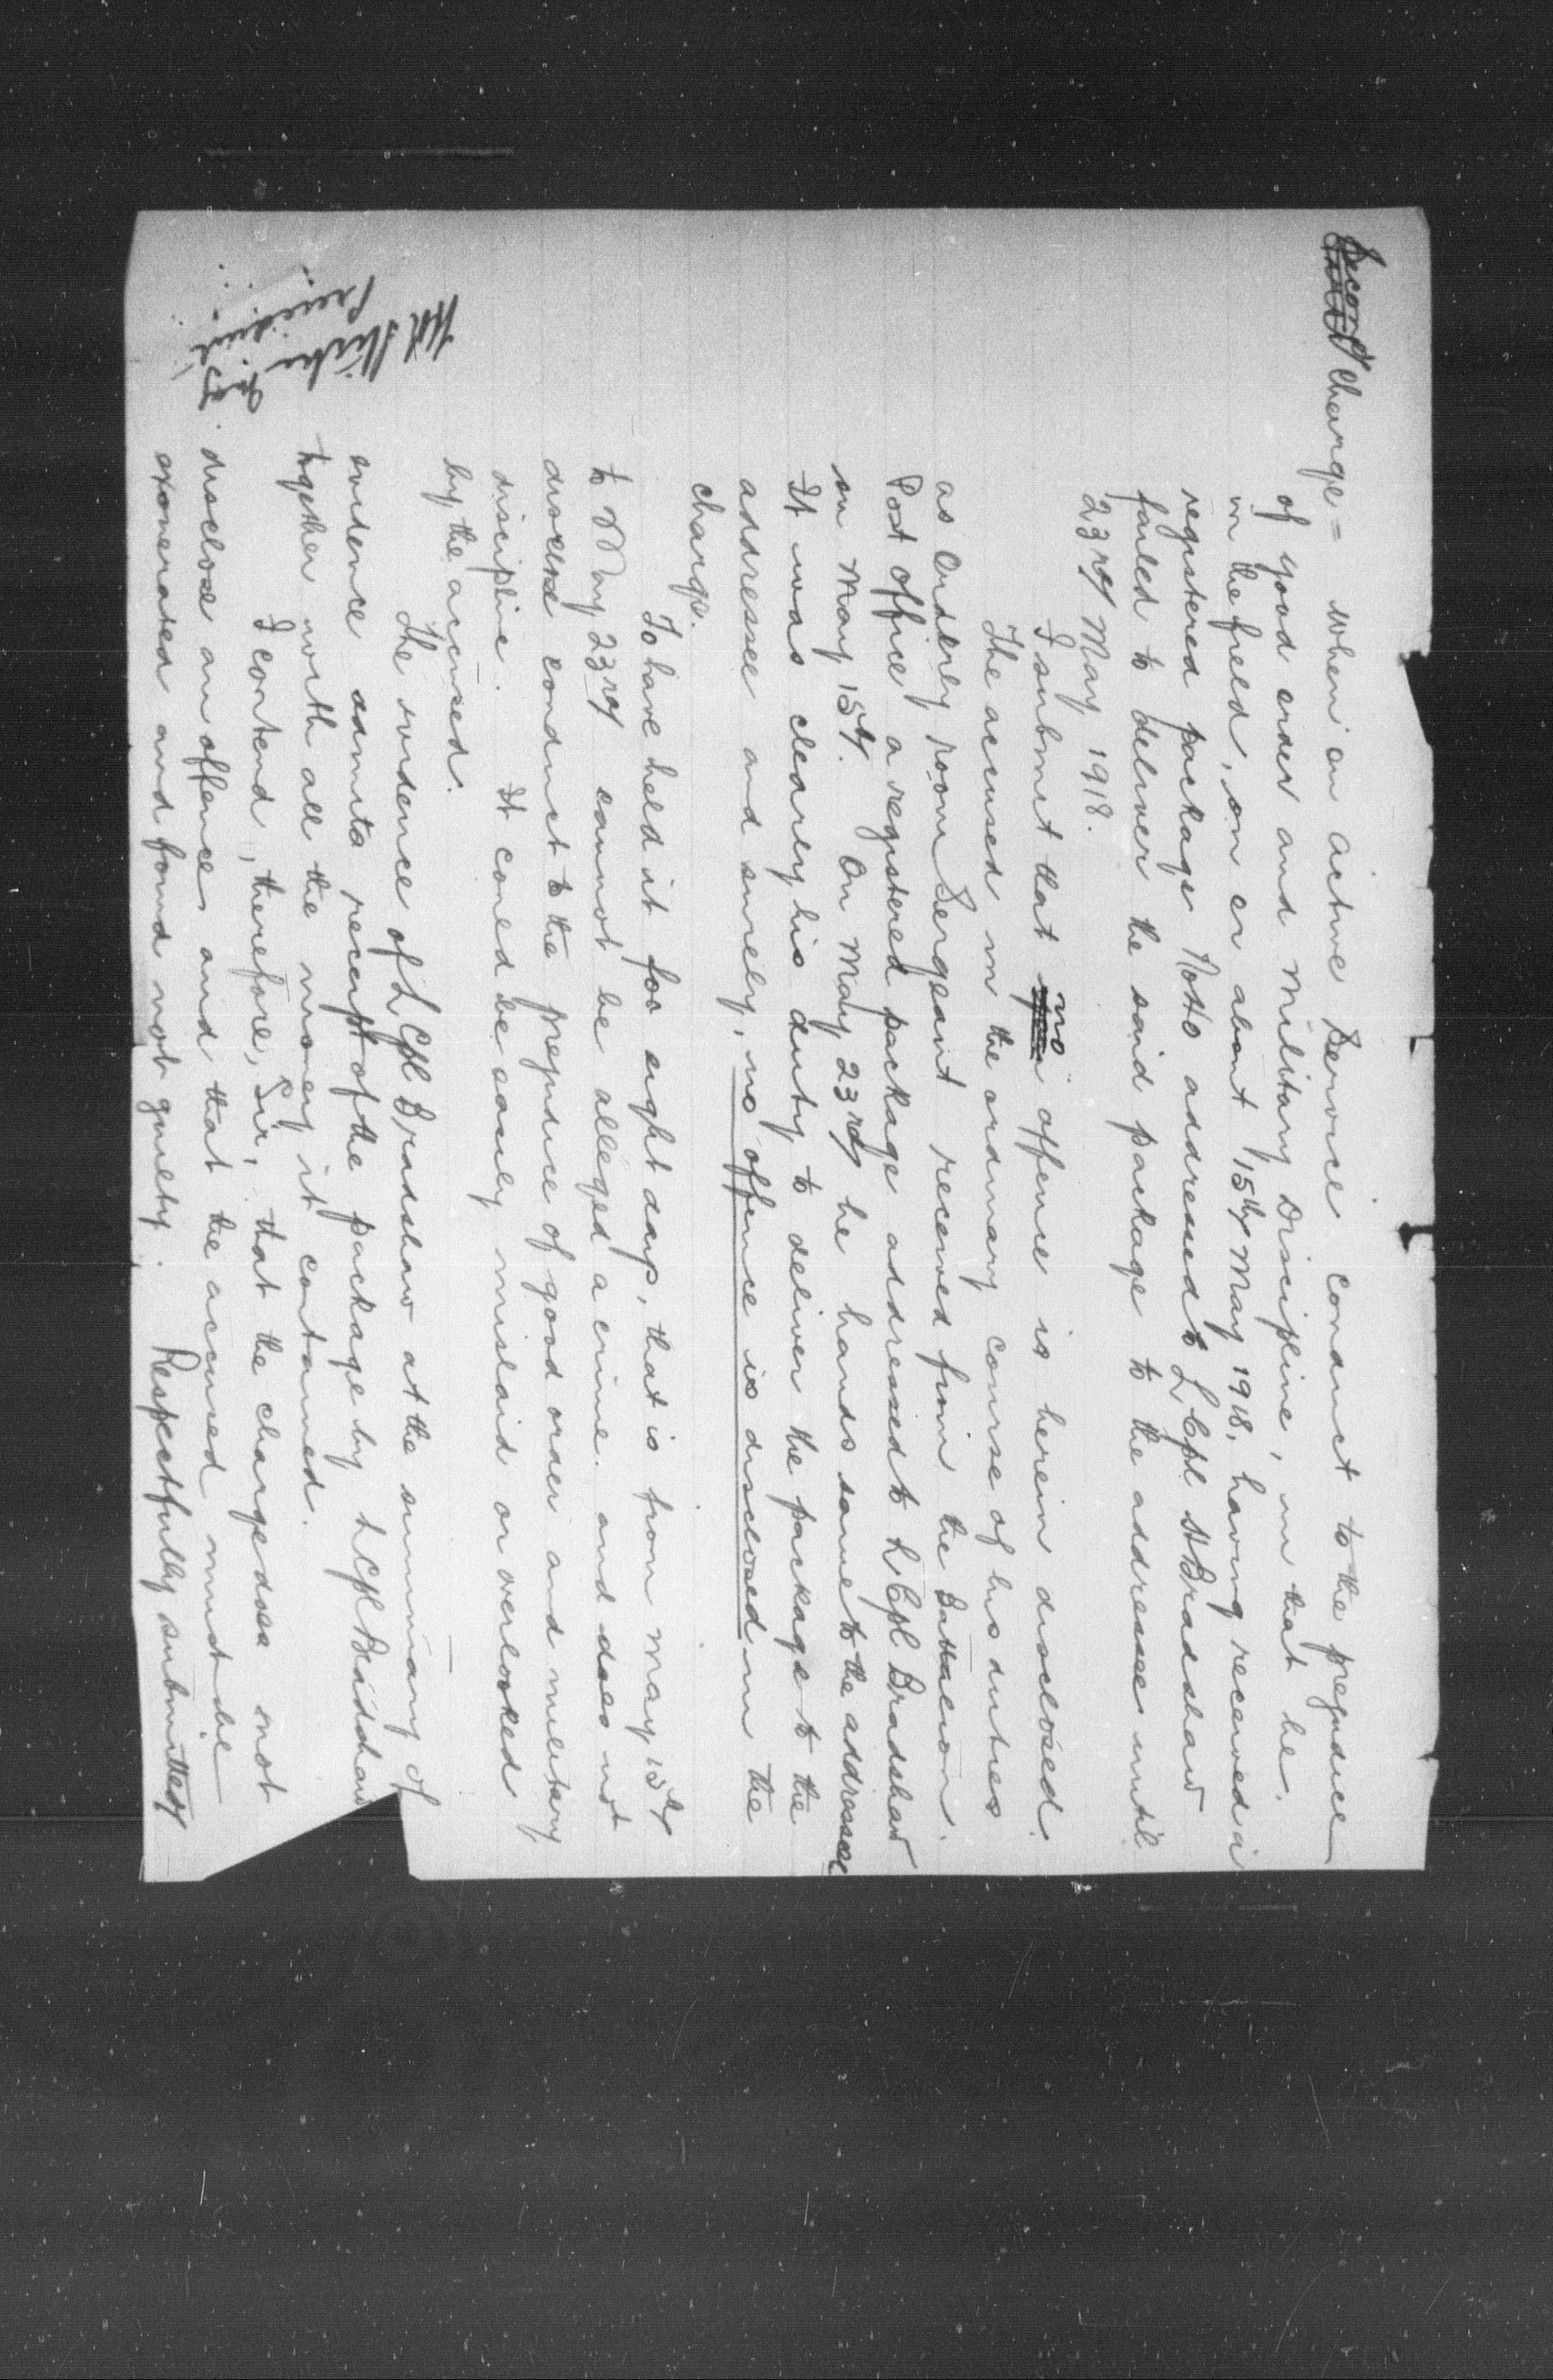 Second Charge = When on Active Service conduct to the prejudice
of good order and Military Discipline, in that he,
in the field, on or about 15th May 1918, having received a
registered package No 40 addressed to L Cpl H Bradshaw
failed to deliver the said package to the addressee until
23rd May 1918.
I submit that no offence is herein disclosed.
The accused in the ordinary course of his duties
as Orderly room Sergeant received from the Battalion
Post Office a registered package addressed to L Cpl Bradshaw
on May 15th. On May 23rd he hands same to the addressee
It was clearly his duty to deliver the package to the
addressee and surely, no offence is disclosed in the
charge.
To have held it for eight days, that is from May 15th
to May 23rd cannot be alleged a crime. and does not
disclose conduct to the prejudice of good order and military
discipline. It could be easily mislaid or overlooked
by the accused.
The evidence of L Cpl Bradshaw at the summary of
evidence admits receipt of the package by L Cpl Bradshaw
together with all the money it contained.
I contend, therefore, Sir, that the charge does not
disclose an offence and that the accused must be
exonerated and found not guilty.
Respectfully submitted
Major
President